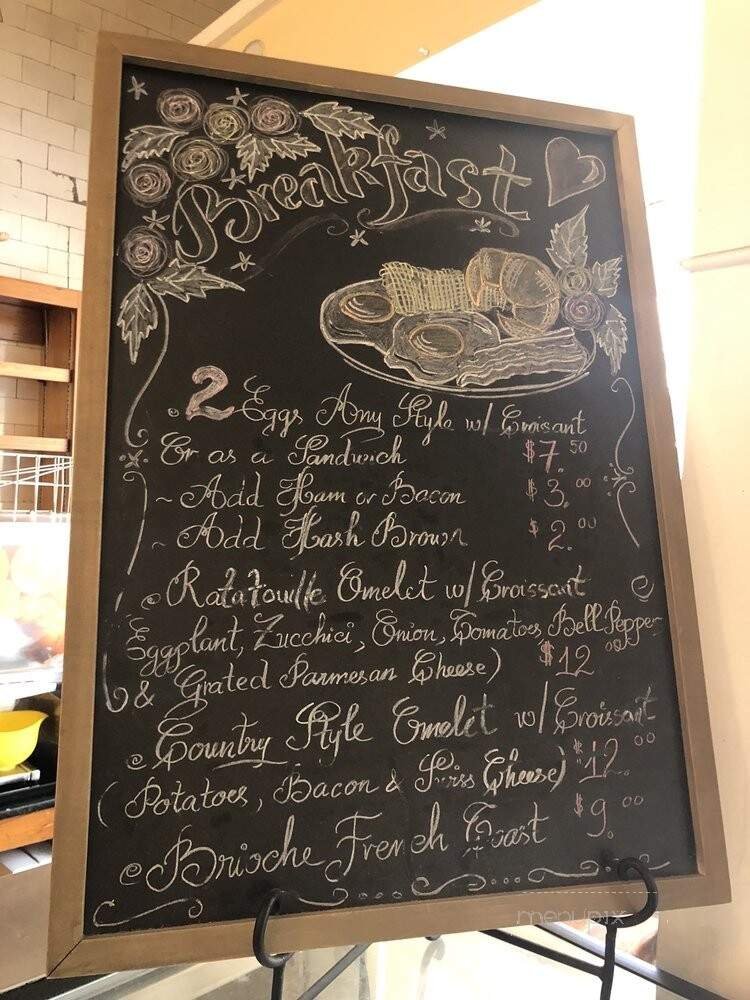 Breakfast
2 Eggs Any Style w/ Croisant
Or as a Sandwich $7.50
~ Add Ham or Bacon $3.00
~ Add Hash Brown $2.00
Ratatouille Omelet w/ Croissant
Eggplant, Zucchici, Onion, Tomatoes, Bell Pepper
& Grated Parmesan Cheese) $12.00
Country Style Omelet w/ Croissant
(Potatoes, Bacon & Swiss Cheese) $12.00
Brioche French Toast $9.00
menupix